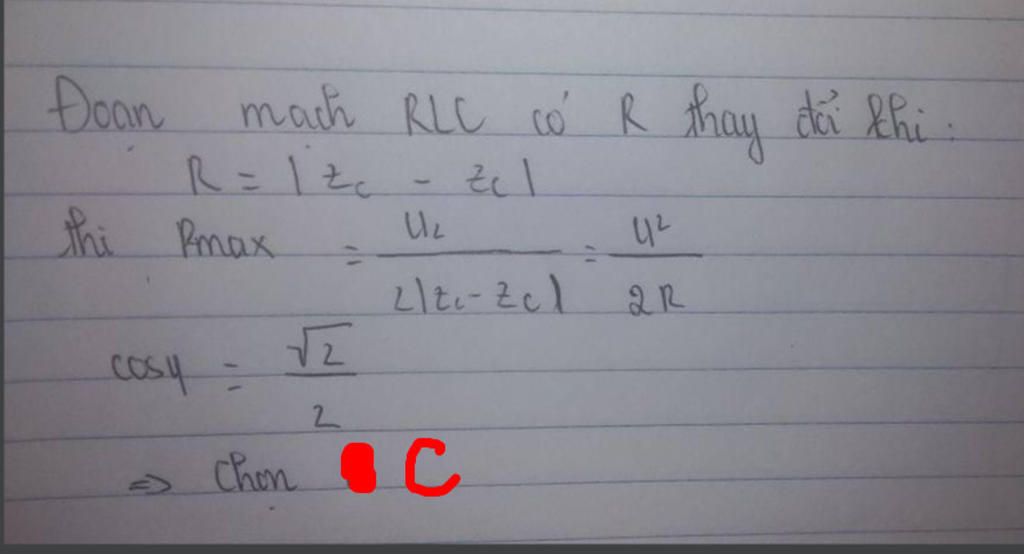 Đoạn mạch RLC có R thay đổi khi:
R = | Zc - Zc |
thì Pmax = U2 / 2|Zc - Zc| = U² / 2R
cosφ = √2 / 2
=> Chọn C